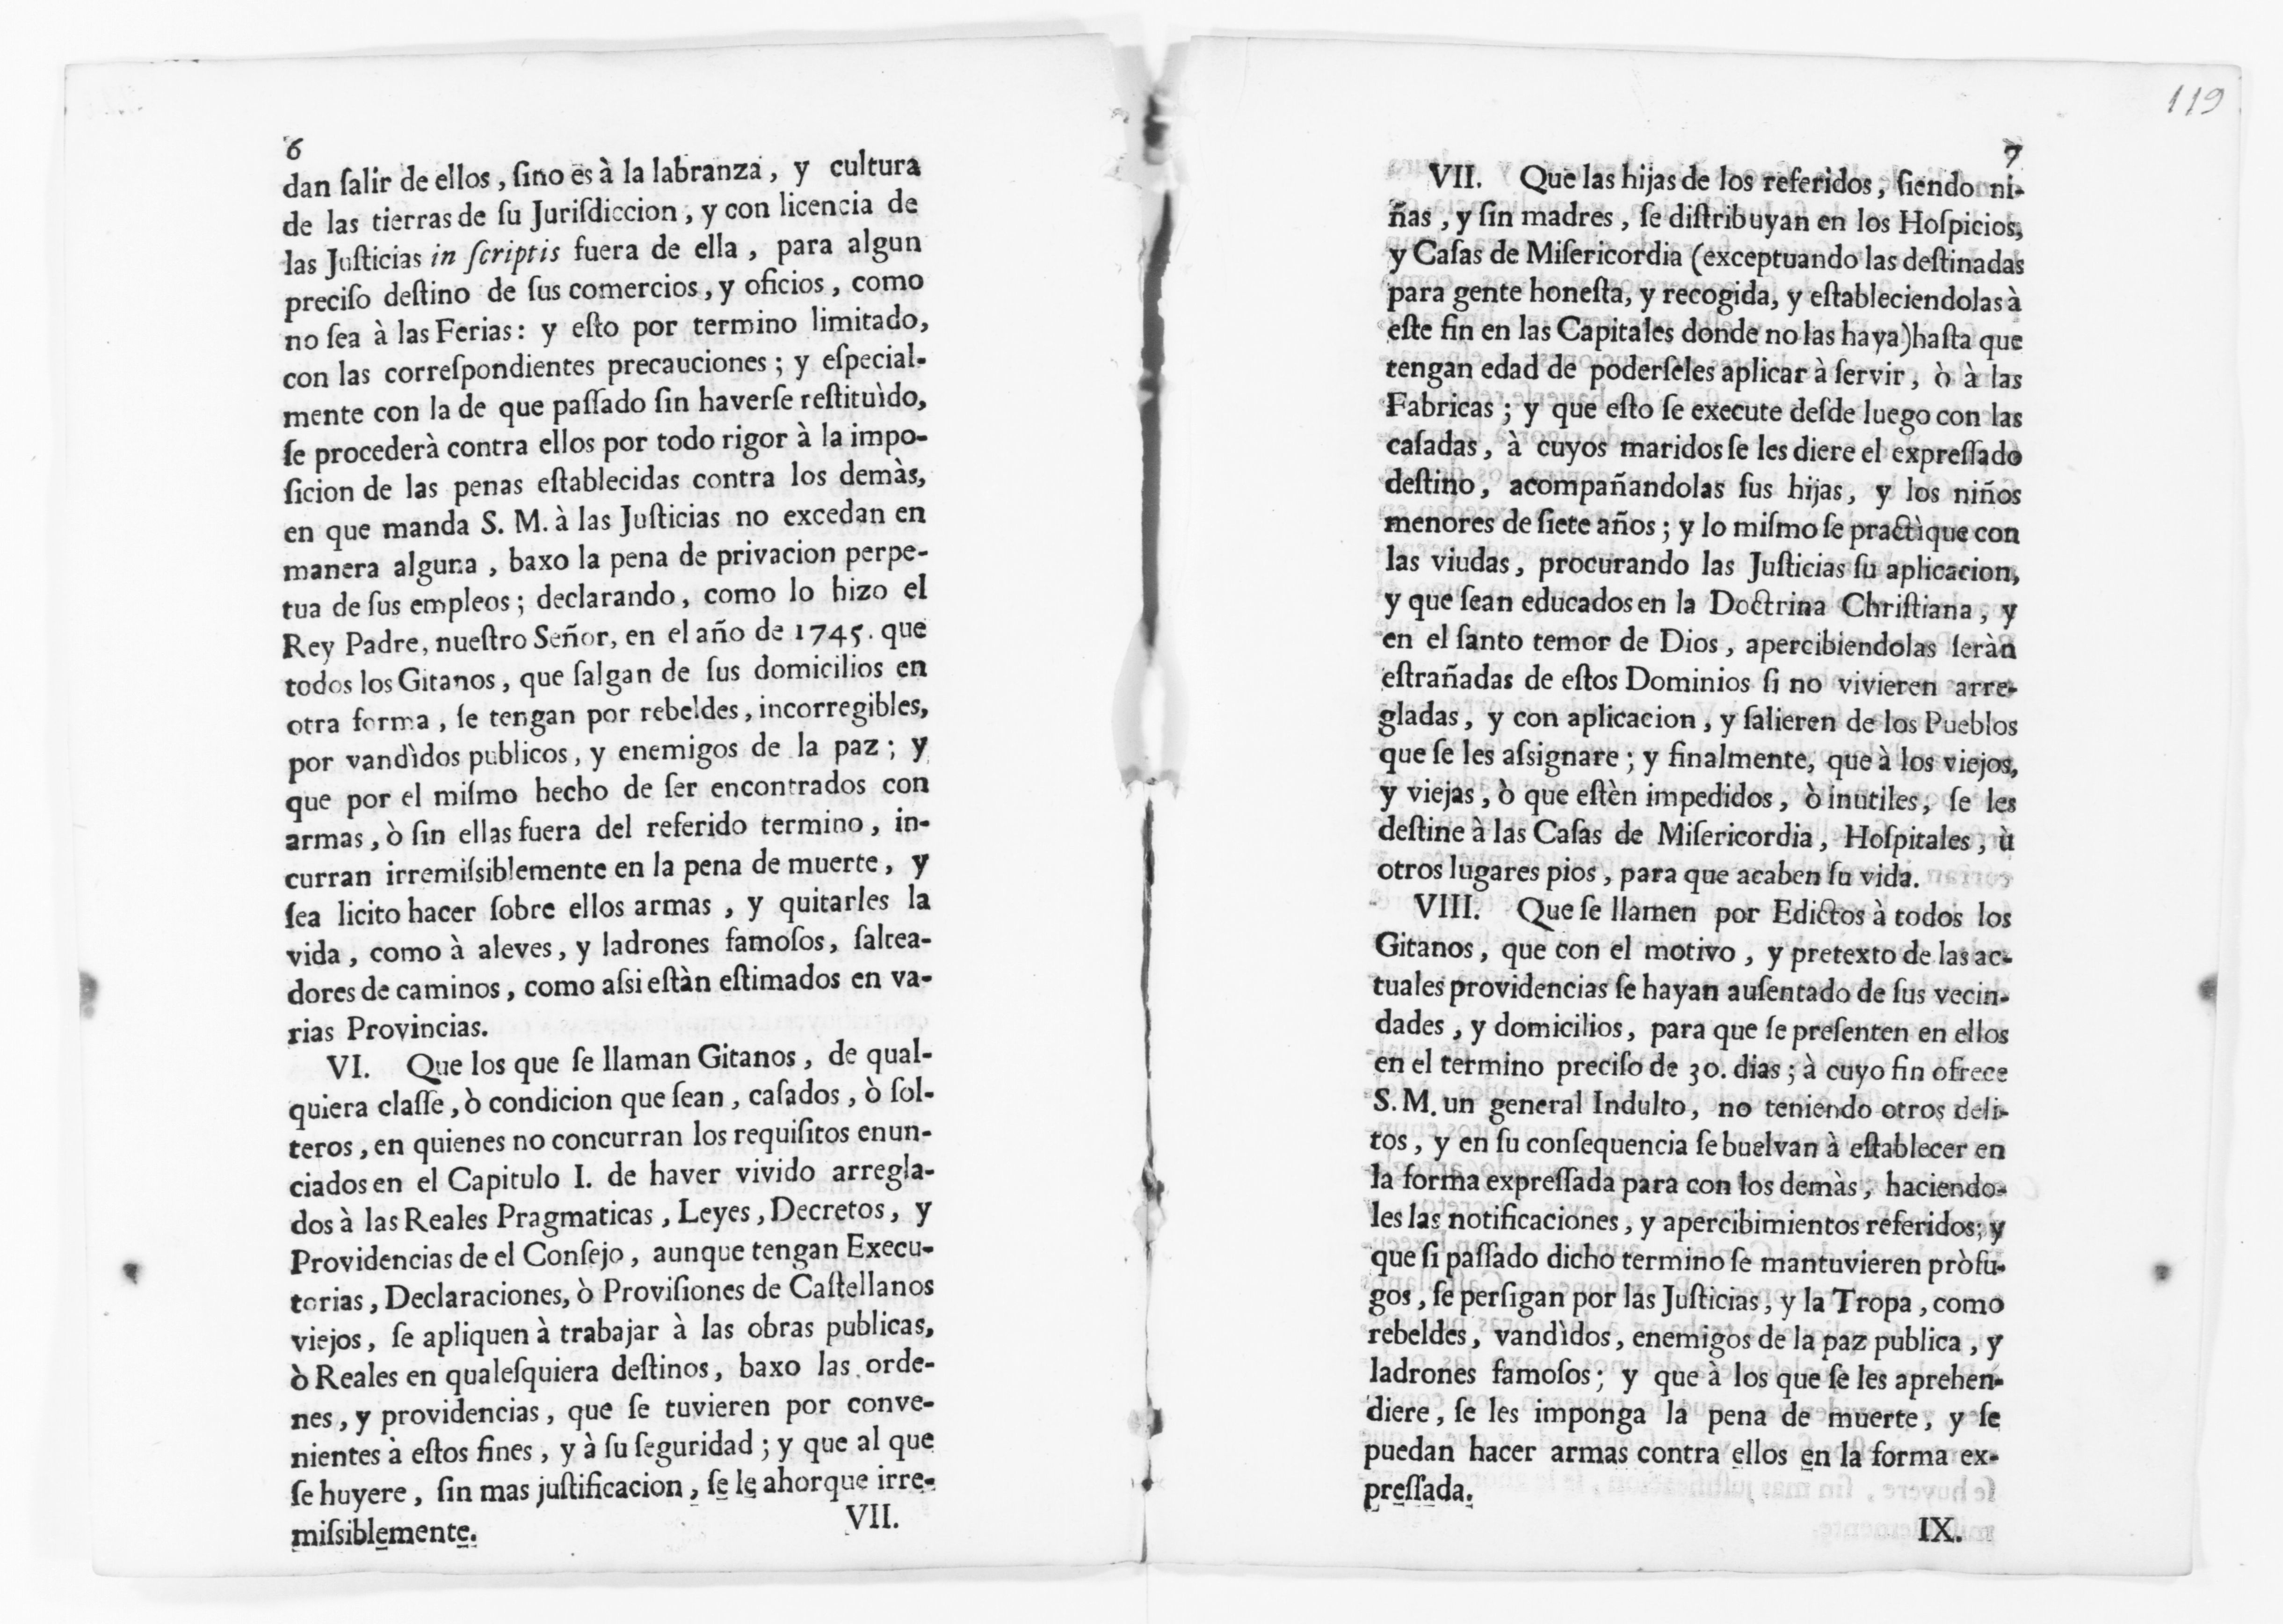 6
dan ſalir de ellos, ſino es à la labranza, y cultura
de las tierras de ſu Juriſdiccion, y con licencia de
las Juſticias in ſcriptis fuera de ella, para algun
preciſo deſtino de ſus comercios, y oficios, como
no ſea à las Ferias: y eſto por termino limitado,
con las correſpondientes precauciones; y eſpecial-
mente con la de que paſſado ſin haverſe reſtituìdo,
ſe procederà contra ellos por todo rigor à la impo-
ſicion de las penas eſtablecidas contra los demàs,
en que manda S. M. à las Juſticias no excedan en
manera alguna, baxo la pena de privacion perpe-
tua de ſus empleos; declarando, como lo hizo el
Rey Padre, nueſtro Señor, en el año de 1745. que
todos los Gitanos, que ſalgan de ſus domicilios en
otra forma, ſe tengan por rebeldes, incorregibles,
por vandìdos publicos, y enemigos de la paz; y
que por el miſmo hecho de ſer encontrados con
armas, ò ſin ellas fuera del referido termino, in-
curran irremiſsiblemente en la pena de muerte, y
ſea licito hacer ſobre ellos armas, y quitarles la
vida, como à aleves, y ladrones famoſos, ſaltea-
dores de caminos, como aſsi eſtàn eſtimados en va-
rias Provincias.
VI. Que los que ſe llaman Gitanos, de qual-
quiera claſſe, ò condicion que ſean, caſados, ò ſol-
teros, en quienes no concurran los requiſitos enun-
ciados en el Capitulo I. de haver vivido arregla-
dos à las Reales Pragmaticas, Leyes, Decretos, y
Providencias de el Conſejo, aunque tengan Execu-
torias, Declaraciones, ò Proviſiones de Caſtellanos
viejos, ſe apliquen à trabajar à las obras publicas,
ò Reales en qualeſquiera deſtinos, baxo las orde-
nes, y providencias, que ſe tuvieren por conve-
nientes à eſtos fines, y à ſu ſeguridad; y que al que
ſe huyere, ſin mas juſtificacion, ſe le ahorque irre-
miſsiblemente.
VII.
119
7
VII. Que las hijas de los referidos, ſiendo ni-
ñas, y ſin madres, ſe diſtribuyan en los Hoſpicios,
y Caſas de Miſericordia (exceptuando las deſtinadas
para gente honeſta, y recogida, y eſtableciendolas à
eſte fin en las Capitales donde no las haya) haſta que
tengan edad de poderſeles aplicar à ſervir, ò à las
Fabricas; y que eſto ſe execute deſde luego con las
caſadas, à cuyos maridos ſe les diere el expreſſado
deſtino, acompañandolas ſus hijas, y los niños
menores de ſiete años; y lo miſmo ſe practìque con
las viudas, procurando las Juſticias ſu aplicacion,
y que ſean educados en la Doctrina Chriſtiana, y
en el ſanto temor de Dios, apercibiendolas ſeràn
eſtrañadas de eſtos Dominios ſi no vivieren arre-
gladas, y con aplicacion, y ſalieren de los Pueblos
que ſe les aſsignare; y finalmente, que à los viejos,
y viejas, ò que eſtèn impedidos, ò inutiles, ſe les
deſtine à las Caſas de Miſericordia, Hoſpitales, ù
otros lugares pios, para que acaben ſu vida.
VIII. Que ſe llamen por Edictos à todos los
Gitanos, que con el motivo, y pretexto de las ac-
tuales providencias ſe hayan auſentado de ſus vecin-
dades, y domicilios, para que ſe preſenten en ellos
en el termino preciſo de 30. dias; à cuyo fin ofrece
S. M. un general Indulto, no teniendo otros deli-
tos, y en ſu conſequencia ſe buelvan à eſtablecer en
la forma expreſſada para con los demàs, haciendo-
les las notificaciones, y apercibimientos referidos; y
que ſi paſſado dicho termino ſe mantuvieren pròfu-
gos, ſe perſigan por las Juſticias, y la Tropa, como
rebeldes, vandìdos, enemigos de la paz publica, y
ladrones famoſos; y que à los que ſe les aprehen-
diere, ſe les imponga la pena de muerte, y ſe
puedan hacer armas contra ellos en la forma ex-
preſſada.
IX.